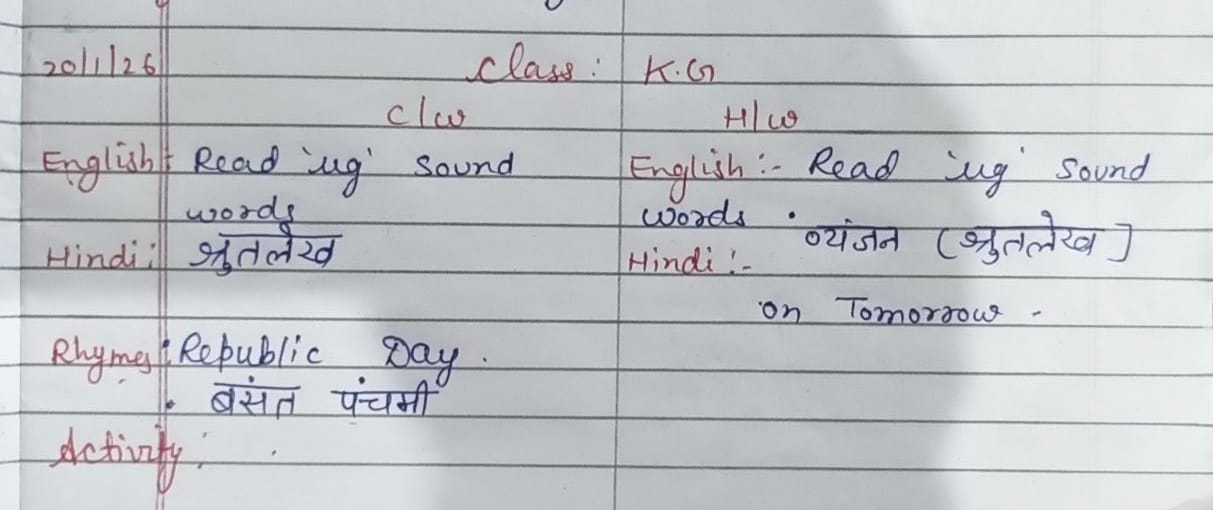 20/1/26 Class: K.G
C/w H/w
English: Read 'ug' Sound English:- Read 'ug' Sound
words words.
Hindi: श्रुतलेख Hindi:- व्यंजन (श्रुतलेख]
on Tomorrow -
Rhymes: Republic Day.
• बसंत पंचमी
Activity: